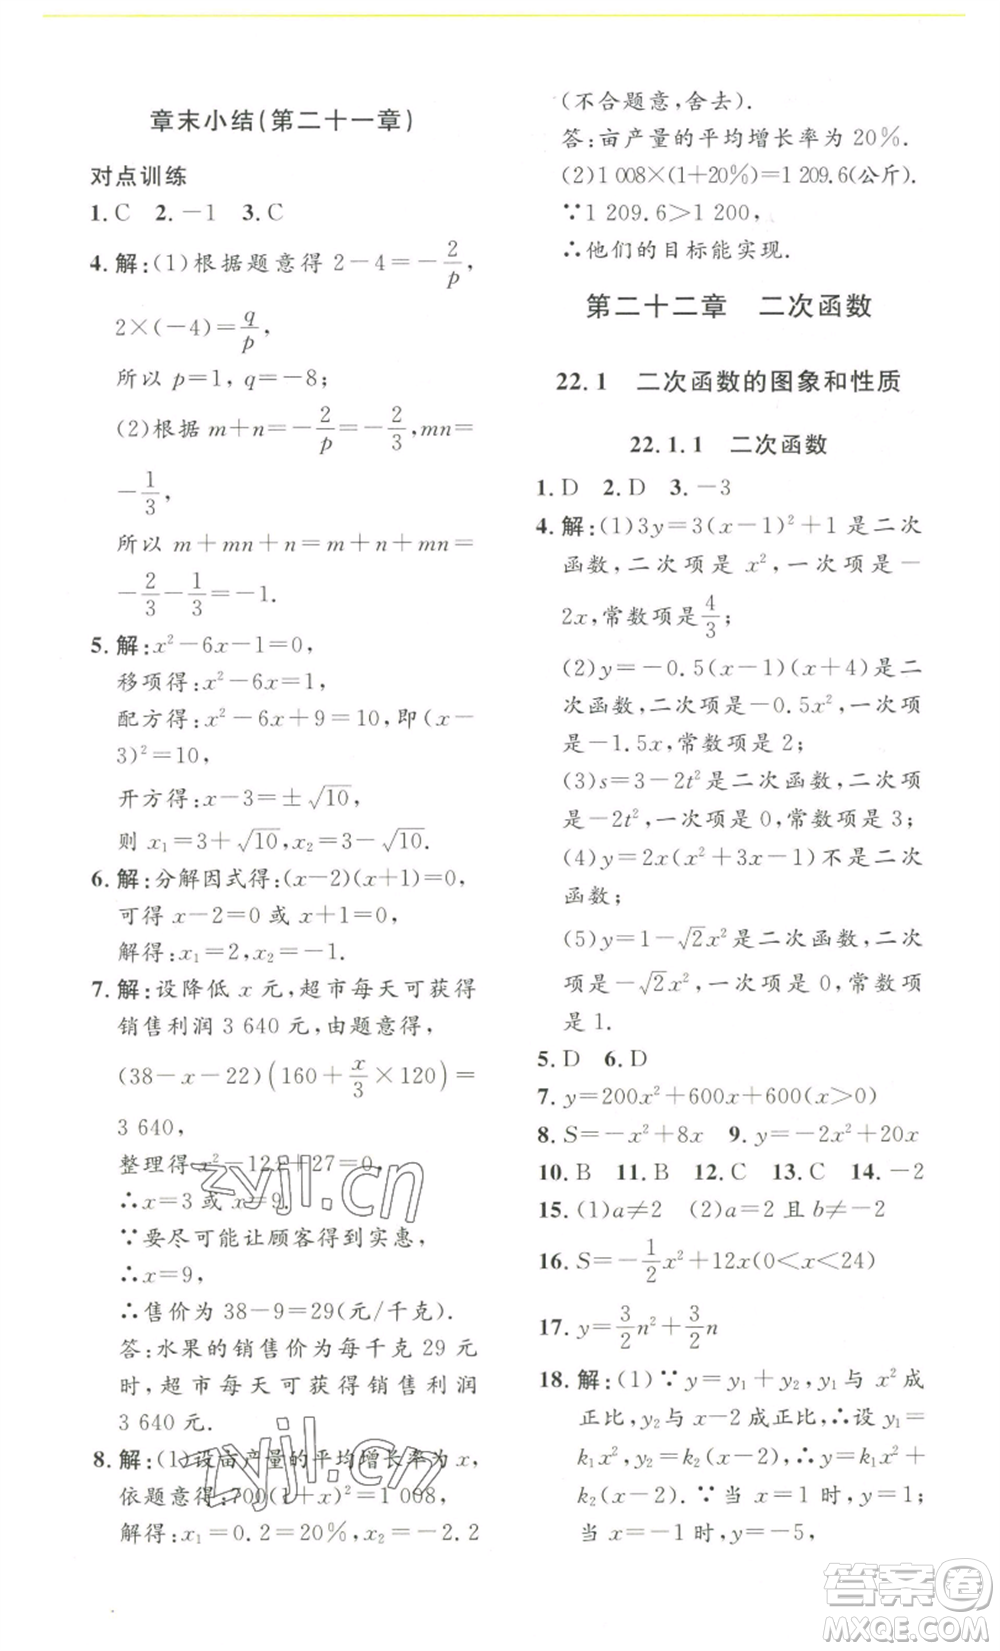 章末小结(第二十一章)
对点训练
1. C 2. －1 3. C
4. 解:(1)根据题意得 2－4＝－2/p,
2×(－4)＝q/p,
所以 p＝1, q＝－8;
(2)根据 m＋n＝－2/p＝－2/3, mn＝
－1/3,
所以 m＋mn＋n＝m＋n＋mn＝
－2/3－1/3＝－1.
5. 解:x²－6x－1＝0,
移项得:x²－6x＝1,
配方得:x²－6x＋9＝10, 即(x－
3)²＝10,
开方得:x－3＝±√10,
则 x₁＝3＋√10, x₂＝3－√10.
6. 解:分解因式得:(x－2)(x＋1)＝0,
可得 x－2＝0 或 x＋1＝0,
解得:x₁＝2, x₂＝－1.
7. 解:设降低 x 元, 超市每天可获得
销售利润 3 640 元, 由题意得,
(38－x－22)(160＋x/3×120)＝
3 640,
整理得 x²－12x＋27＝0,
∴x＝3 或 x＝9.
∵要尽可能让顾客得到实惠,
∴x＝9,
∴售价为 38－9＝29(元/千克).
答:水果的销售价为每千克 29 元
时, 超市每天可获得销售利润
3 640 元.
8. 解:(1)设亩产量的平均增长率为 x,
依题意得:700(1＋x)²＝1 008,
解得:x₁＝0.2＝20%, x₂＝－2.2
(不合题意,舍去).
答:亩产量的平均增长率为 20%.
(2)1 008×(1＋20%)＝1 209.6(公斤).
∵1 209.6＞1 200,
∴他们的目标能实现.
第二十二章 二次函数
22.1 二次函数的图象和性质
22.1.1 二次函数
1. D 2. D 3. －3
4. 解:(1)3y＝3(x－1)²＋1 是二次
函数, 二次项是 x², 一次项是－
2x, 常数项是4/3;
(2)y＝－0.5(x－1)(x＋4)是二
次函数, 二次项是－0.5x², 一次项
是－1.5x, 常数项是 2;
(3)s＝3－2t²是二次函数, 二次项
是－2t², 一次项是 0, 常数项是 3;
(4)y＝2x(x²＋3x－1)不是二次
函数;
(5)y＝1－√2x²是二次函数, 二次
项是－√2x², 一次项是 0, 常数项
是 1.
5. D 6. D
7. y＝200x²＋600x＋600(x＞0)
8. S＝－x²＋8x 9. y＝－2x²＋20x
10. B 11. B 12. C 13. C 14. －2
15. (1)a≠2 (2)a＝2 且 b≠－2
16. S＝－1/2x²＋12x(0＜x＜24)
17. y＝3/2n²＋3/2n
18. 解:(1)∵y＝y₁＋y₂, y₁与 x²成
正比, y₂与 x－2 成正比, ∴设 y₁＝
k₁x², y₂＝k₂(x－2), ∴y＝k₁x²＋
k₂(x－2). ∵当 x＝1 时, y＝1;
当 x＝－1 时, y＝－5,
zyjl.cn
zyjl.cn
答案圈
MXQE.COM